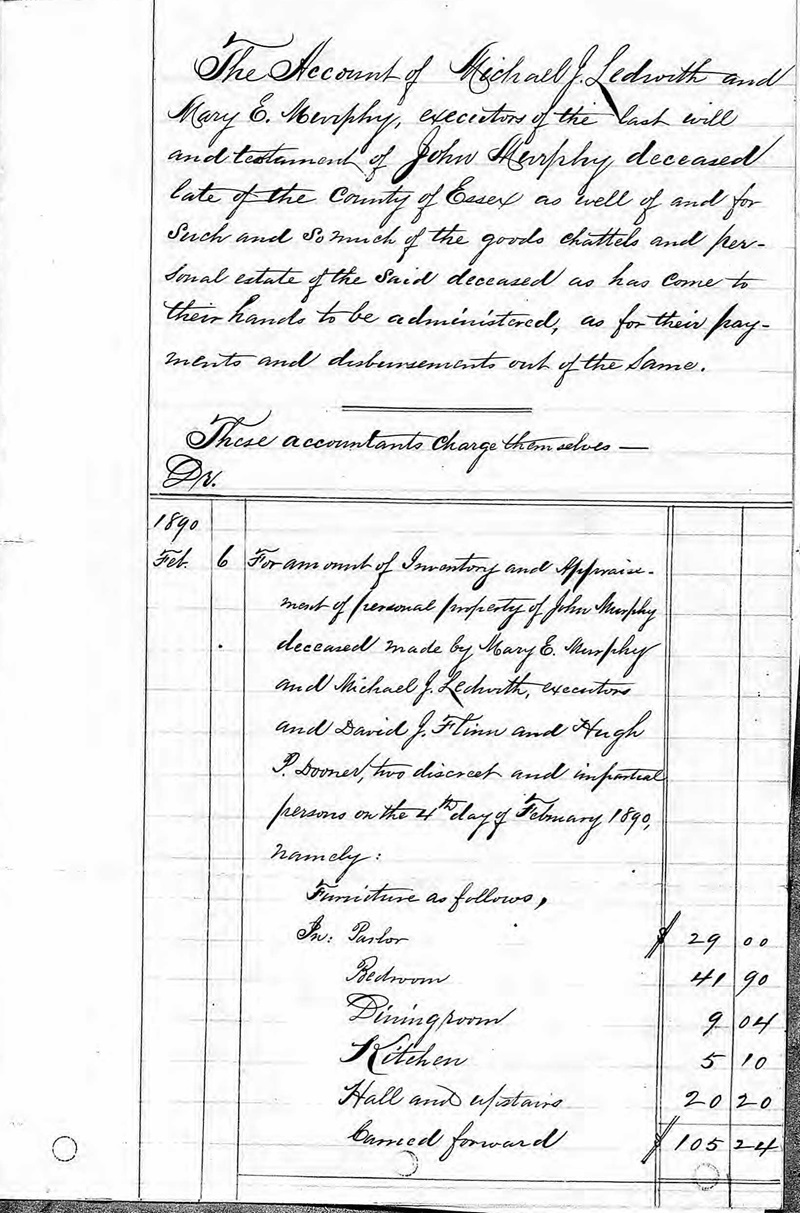 The Account of Michael J. Ledwith and
Mary E. Murphy, executors of the last will
and testament of John Murphy deceased
late of the County of Essex as well of and for
Such and So much of the goods chattels and per-
sonal estate of the Said deceased as has come to
their hands to be administered, as for their pay-
ments and disbursements out of the Same.
These accountants charge themselves —
Dr.
1890
Feb. 6 For amount of Inventory and Appraise-
ment of personal property of John Murphy
deceased made by Mary E. Murphy
and Michael J. Ledwith, executors
and David J. Flinn and Hugh
P. Dooner, two discreet and impartial
persons on the 4th day of February 1890,
namely:
Furniture as follows,
In: Parlor $ 29 00
Bedroom 41 90
Diningroom 9 04
Kitchen 5 10
Hall and upstairs 20 20
Carried forward $ 105 24